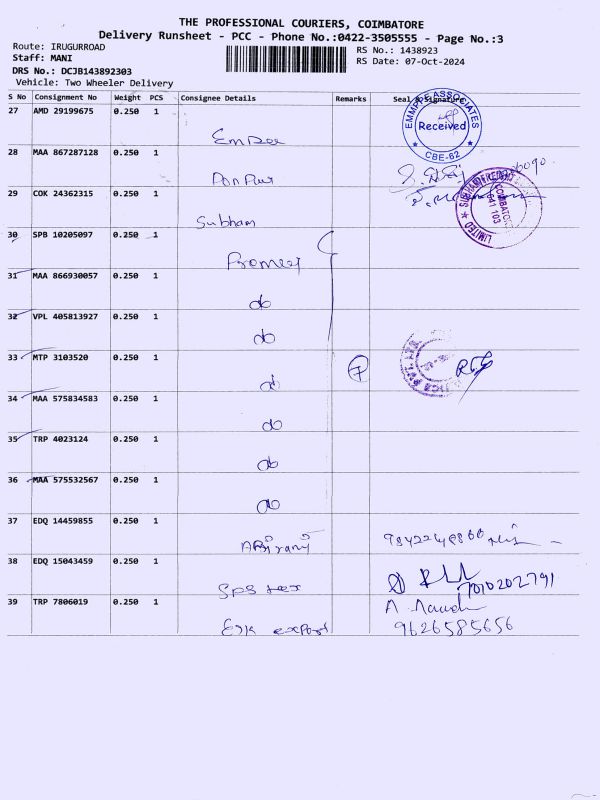 THE PROFESSIONAL COURIERS, COIMBATORE
Delivery Runsheet - PCC - Phone No.:0422-3505555 - Page No.:3
Route: IRUGURROAD
Staff: MANI
DRS No.: DCJB143892303
Vehicle: Two Wheeler Delivery
RS No.: 1438923
RS Date: 07-Oct-2024
S No Consignment No Weight PCS Consignee Details Remarks Seal & Signature
27 AMD 29199675 0.250 1
EMMPEE ASSOCIATES Received CBE-62
28 MAA 867287128 0.250 1
29 COK 24362315 0.250 1 Subham
LIMITED COIMBATORE 641 103
30 SPB 10205097 0.250 1
31 MAA 866930057 0.250 1 do
32 VPL 405813927 0.250 1 do
33 MTP 3103520 0.250 1 do 7
34 MAA 575834583 0.250 1 do
35 TRP 4023124 0.250 1 do
36 MAA 575532567 0.250 1 do
37 EDQ 14459855 0.250 1
38 EDQ 15043459 0.250 1 SPS
39 TRP 7806019 0.250 1 export 9626585656